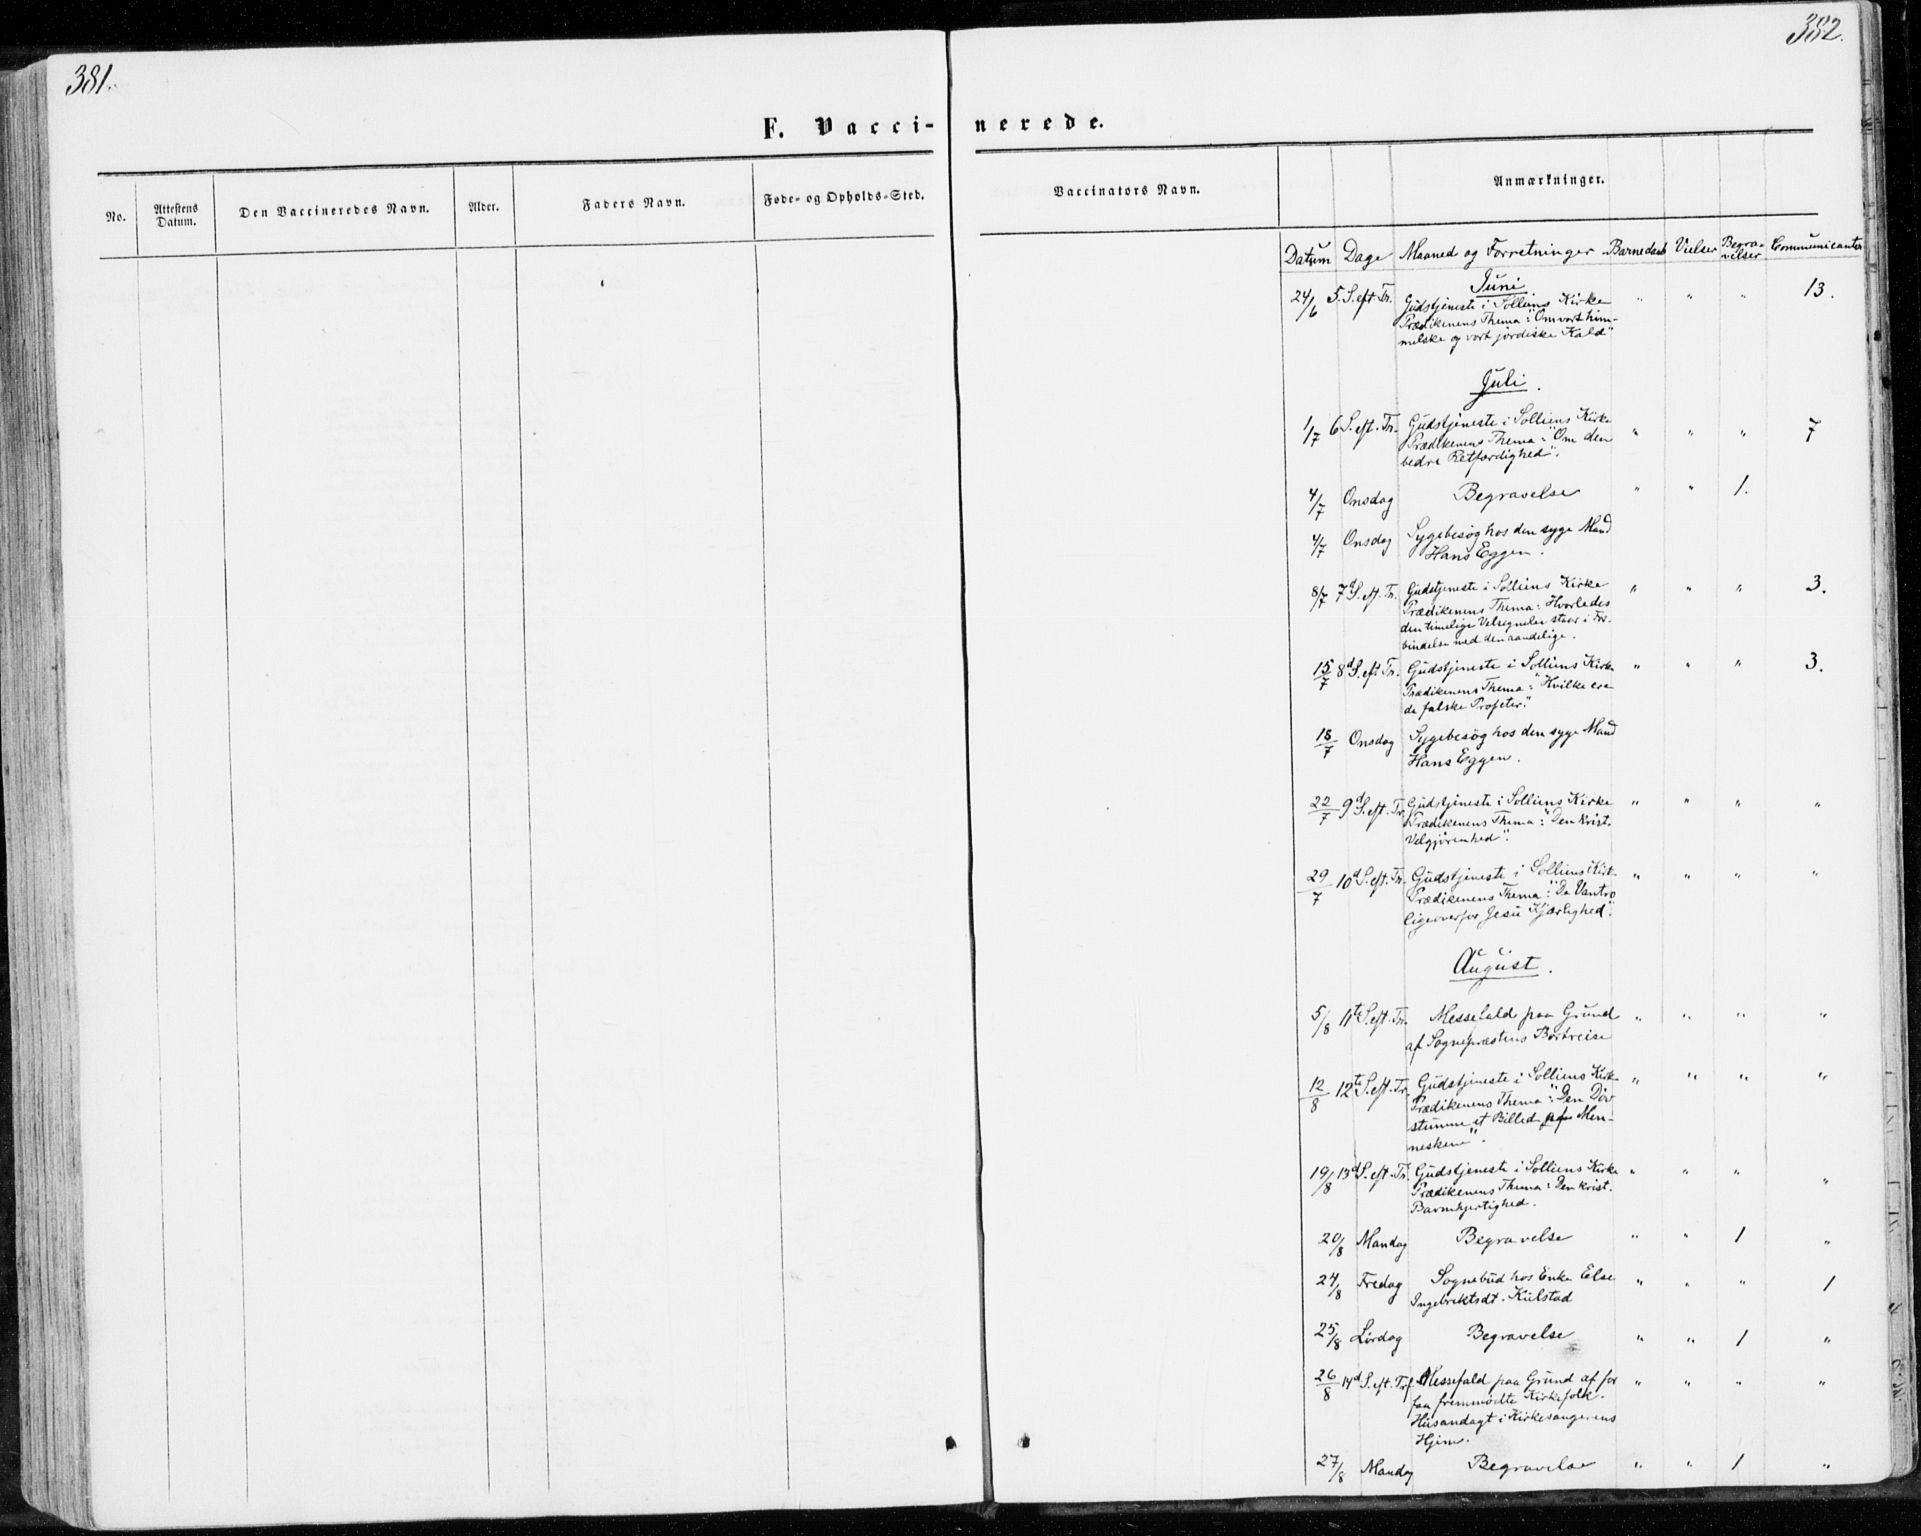 381.
382.
F. Vacci-
nerede.
No.
Attestens
Datum.
Den Vaccineredes Navn.
Alder.
Faders Navn.
Føde- og Opholds-Sted.
Vaccinators Navn.
Anmærkninger.
Datum Dage Maaned og Forretninger Barnedaab Vielser Begra-velser Communicanter
Juni
24/6 5. S. eft. Tr. Gudstjeneste i Solliens Kirke " " " 13.
Prædikenens Thema: "Om vort him-
melske og vort jordiske Kald"
Juli.
1/7 6 S. eft. Tr. Gudstjeneste i Solliens Kirke
Prædikenens Thema: "Om den " " " 7
bedre Retfærdighed".
4/7 Onsdag Begravelse " " 1.
4/7 Onsdag Sygebesøg hos den syge Mand
Hans Eggen.
8/7 7d S. eft. Tr. Gudstjeneste i Solliens Kirke " " " 3.
Prædikenens Thema: Hvorledes
den timelige Velsignelse staar i For-
bindelse med den aandelige.
15/7 8d S. eft Tr. Gudstjeneste i Solliens Kirke " " " 3.
Prædikenens Thema: "Hvilke ere
de falske Profeter."
18/7 Onsdag Sygebesøg hos den syge Mand
Hans Eggen.
22/7 9d S. eft. Tr. Gudstjeneste i Solliens Kirke " " " "
Prædikenens Thema: "Den krist.
Velgjørenhed".
29/7 10d S. eft. Tr. Gudstjeneste i Solliens Kirk. " " " "
Prædikenens Thema: "De Vantro
ligeoverfor Jesu Kjærlighed".
August.
5/8 11te S. eft. Tr. Messefald paa Grund " " " "
af Sognepræstens Bortreise
12/8 12te S. eft. Tr. Gudstjeneste i Solliens Kirk " " " "
Prædikenens Thema: "Den Døv
stumme et Billed paa Men-
neskene".
19/8 13d S. eft. Tr. Gudstjeneste i Solliens Kirke " " " "
Prædikenens Thema: Den krist.
Barmhjertighed.
20/8 Mandag Begravelse " " 1 "
24/8 Fredag Sognebud hos Enke Else " " " 1
Ingebrektsdt. Kulstad
25/8 Lørdag Begravelse " " 1 "
26/8 14d S. eft. Tr. Messefald paa Grund af for " " " "
faa fremmødte Kirkefolk.
Husandagt i Kirkesangerens
Hjem.
27/8 Mandag Begravelse " " 1 "